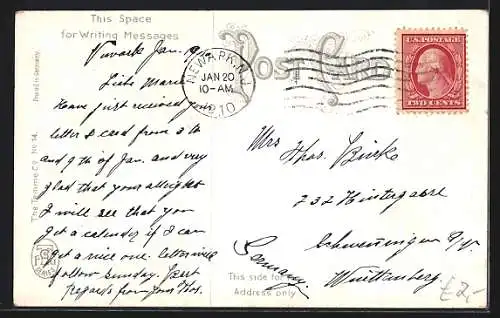 This Space
for Writing Messages
Newark Jan. 19
Liebe Marie
Have just received your
letter & card from 3th
and 9th of Jan. and very
glad that your allright
I will see that you
get a calender if I can
get a nice one. letter will
follow sunday. Best
regards from your Thos.
Printed in Germany.
The Temme Co. No 14.
POST CARD
NEWARK, N.J.
JAN 20
10-AM
1910
U.S. POSTAGE
TWO CENTS
Mrs
Thos. Binks
232 Hintergasse
Schwenningen a/N.
Württemberg
Germany
This side for
Address only
£2,-